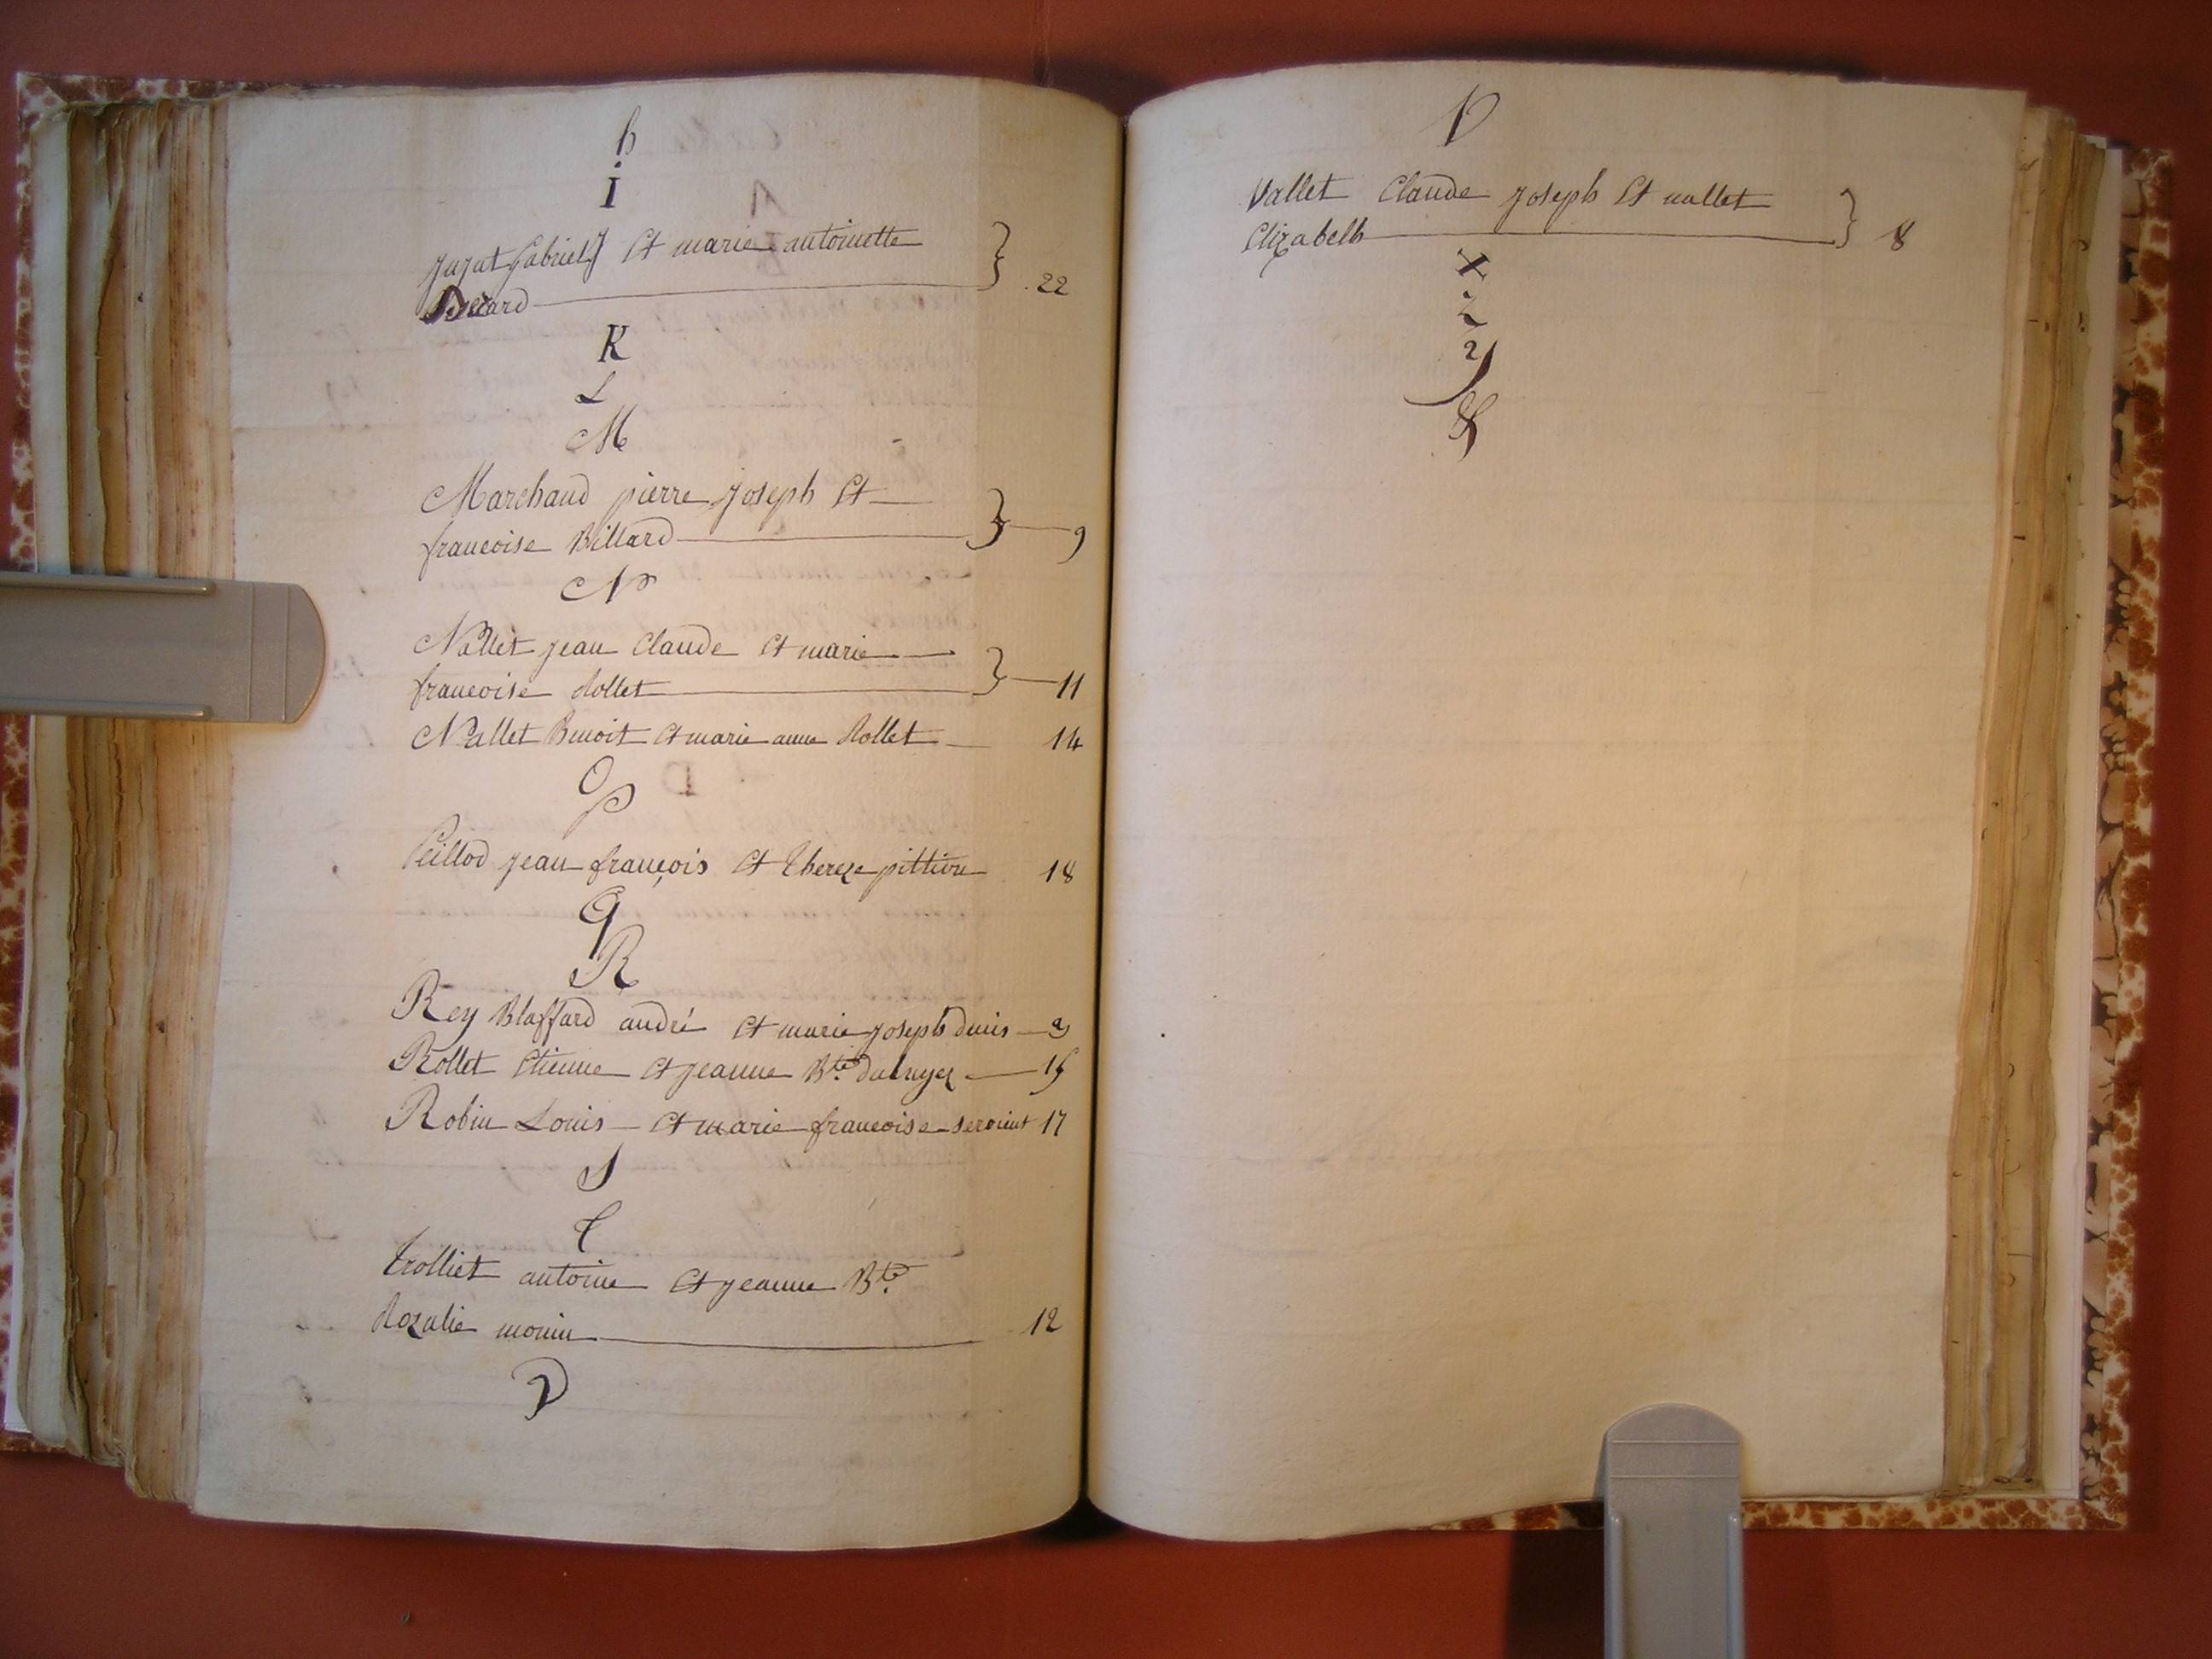 h
I
jujat Gabriel J et marie antoinette
Berard 22
K
L
M
Marchand pierre joseph et
francoise Billard 9
N
Nallet jean Claude et marie
francoise Rollet 11
Nallet Benoit et marie anne Rollet 14
O
P
Peillod jean françois et thereze pittion 18
Q
R
Rey Blaffard andré et marie joseph denis
Rollet Etienne et jeanne Bte 15
Robin Louis et marie francoise 17
S
T
trolliet antoine et jeanne Bte
Rozalie monin 12
V
V
Vallet Claude joseph et nallet
Elizabeth 8
X
Z
Y
&